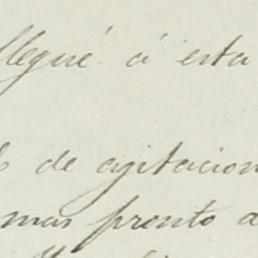 llegué á esta
de agitacion
mas pronto a